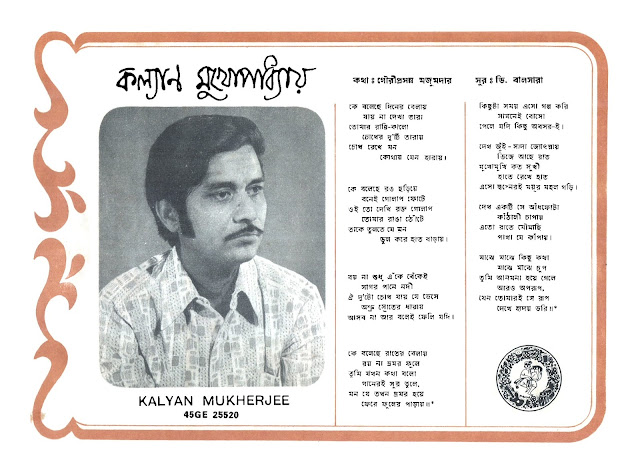 কল্যাণ মুখোপাধ্যায়
KALYAN MUKHERJEE
45GE 25520
কথা : গৌরীপ্রসন্ন মজুমদার
কে বলেছে দিনের বেলায়
যায় না দেখা তারা
তোমার রাত্রি-কালো
চোখের দু'টি তারায়
চোখ রেখে মন
কোথায় যেন হারায়।
কে বলেছে রঙ ছড়িয়ে
বনেই গোলাপ ফোটে
ওই তো দেখি রক্ত গোলাপ
তোমার রাঙা ঠোঁটে
তাকে তুলতে যে মন
ভুল করে হাত বাড়ায়।
বয় না শুধু এঁকে বেঁকেই
সাগর পানে নদী
ঐ দু'টো চোখ যায় যে ভেসে
অশ্রু স্রোতের ধারায়
আসব না আর বলেই ফেলি যদি।
কে বলেছে রাতের বেলায়
বয় না ভ্রমর ফুলে
তুমি যখন কথা বলো
গানেরই সুর তুলে,
মন যে তখন ভ্রমর হয়ে
ফেরে ফুলের পাড়ায়॥*
সুর : ভি. বালসারা
কিছুটা সময় এসো গল্প করি
সামনেই বোসো
পেলে যদি কিছু অবসর-ই।
দেখ জুঁই-সাদা জ্যোৎস্নায়
ভিজে আছে রাত
মুখোমুখি কত সুখী
হাতে রেখে হাত
এসো স্বপ্নেরই ময়ূর মহল গড়ি।
দেখ একটি সে আধফোটা
কাঁঠালী চাঁপায়
এতো রাতে মৌমাছি
পাখা যে কাঁপায়।
মাঝে মাঝে কিছু কথা
মাঝে মাঝে চুপ
তুমি আনমনা হয়ে গেলে
আরও অপরূপ,
যেন তোমারই সে রূপ
দেখে হৃদয় ভরি॥*